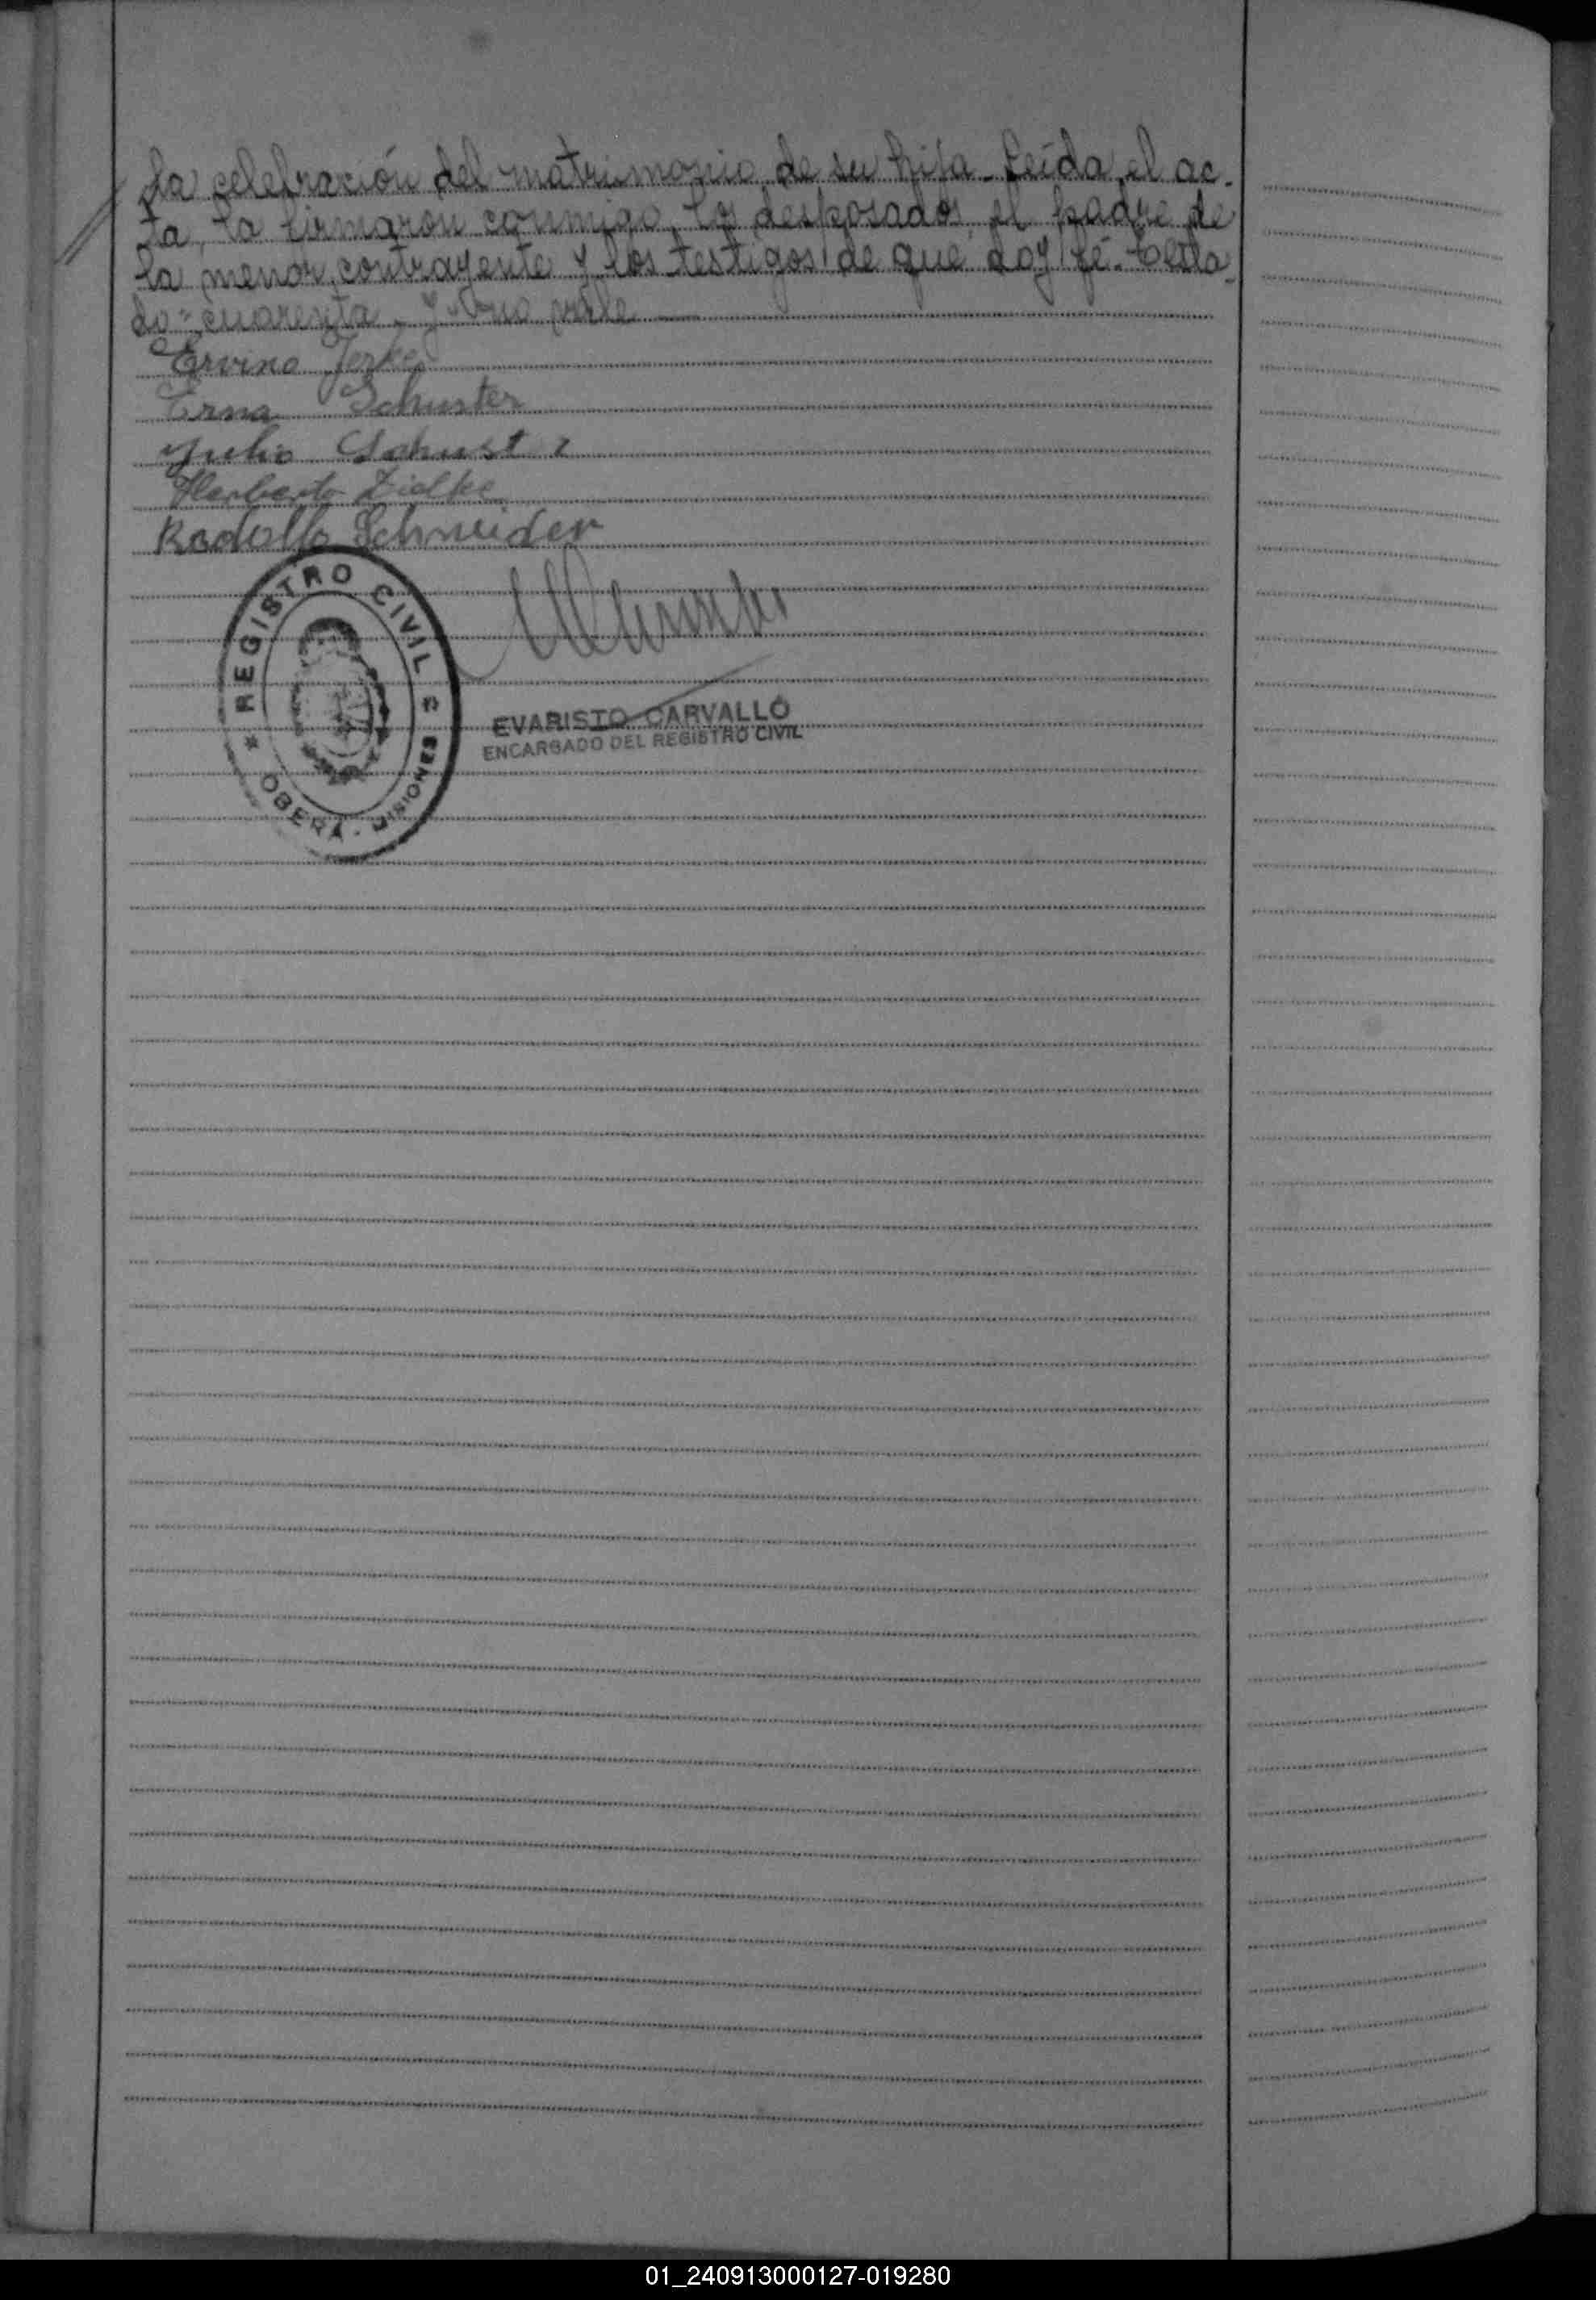 la celebración del matrimonio de su hija. Leída el ac-
ta, la firmaron conmigo, los desposados, el padre de
la menor contrayente y los testigos de que doy fé. Testa-
do: cuarenta y uno
Ervino Jerke
Erna Schuster
Julio Schust r
Herberto Zielke
Rodolfo Schneider
REGISTRO CIVIL
OBERA - MISIONES
EVARISTO CARVALLO
ENCARGADO DEL REGISTRO CIVIL
01_240913000127-019280